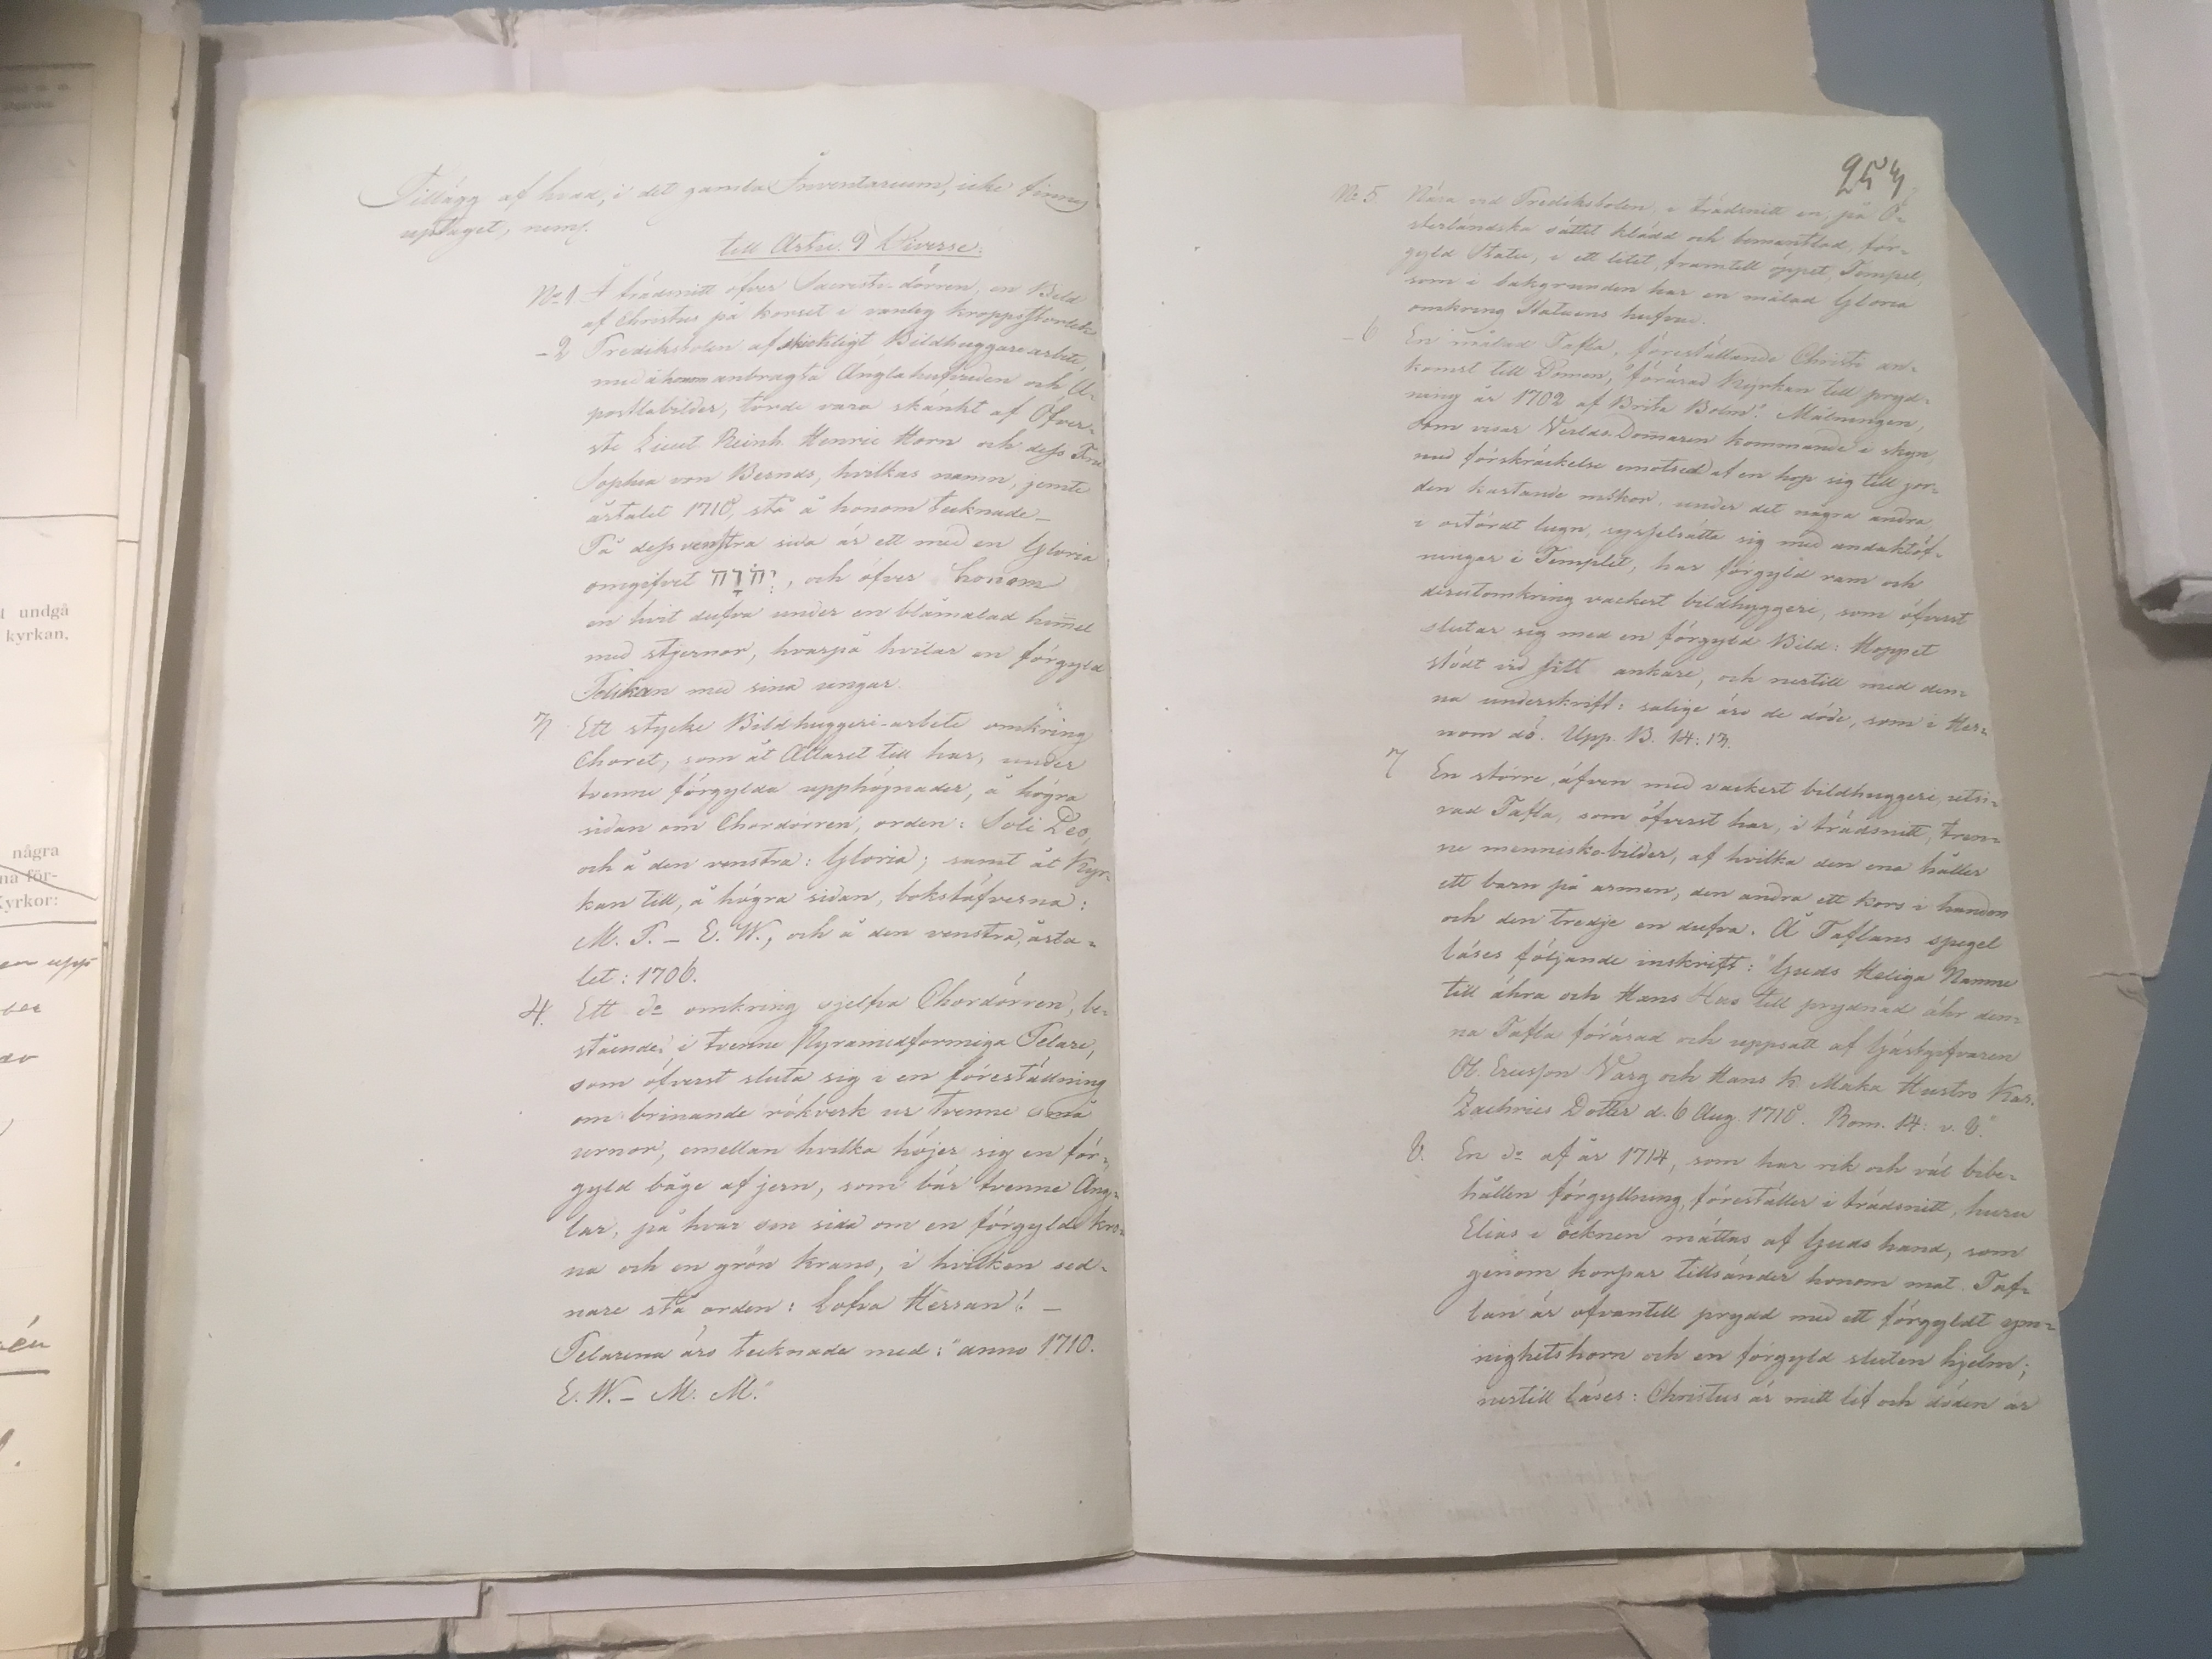 Tillägg af hvad, i det gamla Inventarium, icke finnes
uptaget, neml.
till Artic. 9 Diverse.
No 1 I trädsnitt öfver Sacristi-dörren, en Bild
af Christus på korset i vanlig kroppsstorlek
– 2 Predikstolen af skickligt Bildhuggare arbete,
med å honom anbragta Änglahufvuden och A-
postlabilder, torde vara skänkt af Öfver-
ste Lieut Reinh. Henric Horn och dess Fru
Sophia von Bernds, hvilkas namn, jemte
årtalet 1718, stå å honom tecknade –
På dess venstra sida är ett med en Gloria
omgifvet יְהֹוָה, och öfver honom
en hvit dufva under en blåmalad him̅el
med stjernor, hvarpå hvilar en förgyld
Pelikan med sina ungar.
3 Ett stycke Bildhuggeri-arbete omkring
Choret, som åt Altaret till har, under
tvenne förgylda upphöjnader, å högra
sidan om Chordörren, orden: Soli Deo,
och å den venstra: Gloria; samt åt Kyr-
kan till, å högra sidan, bokstäfverna:
M. P. – E. W., och å den venstra, årta-
let: 1706.
4. Ett do omkring sjelfva Chordörren, be-
stående i tvenne Pyramidformiga Pelare,
som öfverst sluta sig i en föreställning
om brinande rökverk ur tvenne små
urnor, emellan hvilka höjer sig en för-
gyld båge af jern, som bär tvenne Äng-
lar, på hvar sin sida om en förgyld kro-
na och en grön krans, i hvilken sed-
nare stå orden: Lofva Herran! –
Pelarena äro tecknade med: "anno 1710.
E. W. – M. M."
253
No 5 Nära vid Predikstolen, i trädsnitt en, på Ö-
sterländska sättet klädd och bemantlad, för-
gyld Statu, i ett litet, framtill öppet, Tempel,
som i bakgrunden har en målad Gloria
omkring Statuens hufvud.
– 6 En målad Tafla, föreställande Christi an-
komst till Domen, "förärad Kyrkan till pryd-
ning år 1702 af Brita Bolm". Målningen,
som visar Verlds-Dom̅aren kommande i skyn
med förskräckelse emotsed af en hop sig till jor-
den kastande mskor, under det några andra,
i ostördt lugn, sysselsätta sig med andaktöf-
ningar i Templet, har förgyld ram och
derutomkring vackert bildhyggeri, som öfverst
slutar sig med en förgyld Bild: Hoppet
stödt vid sitt ankare, och nertill med den-
na underskrift: salige äro de döde, som i Her-
ranom dö. Upp. B. 14: 13.
7 En större, äfven med vackert bildhuggeri utsi-
rad Tafla, som öfverst har, i trädsnitt, tren-
ne menniskobilder, af hvilka den ena håller
ett barn på armen, den andra ett kors i handen
och den tredje en dufva. Å Taflans spegel
läses följande inskrift: "Guds Heliga Namne
till ähra och Hans Hus till prydnad ähr den-
na Tafla förärad och uppsatt af Gästgifvaren
Ol. Ericsson Varg och Hans K. Maka Hustro Kar.
Zachries Dotter d. 6 Aug. 1718. Rom. 14: v. 8."
8. En do af år 1714, som har rik och väl bibe-
hållen förgyllning, föreställer i trädsnitt, huru
Elias i öcknen mättas af Guds hand, som
genom korpar tillsänder honom mat. Taf-
lan är ofvantill prydd med ett förgyldt ym-
nighetshorn och en förgyld sluten hjelm;
nertill läses: Christus är mitt lif och döden är
t undgå
kyrkan,
några
na för-
Kyrkor: